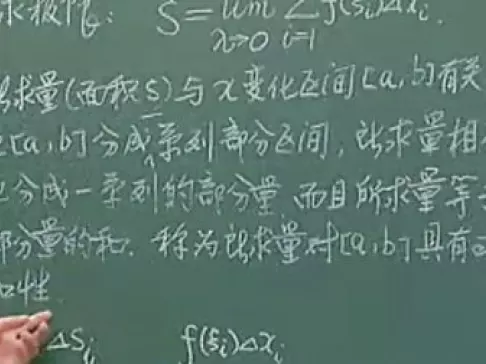 求极限: S = lim Σ f(ξi)Δxi.
λ→0 i=1
所求量(面积S)与x变化区间[a,b]有关
[a,b]分成一系列部分区间,所求量相
分成一系列的部分量,而且所求量等
部分量的和.称为所求量对[a,b]具有
加性.
ΔSi f(ξi)Δxi